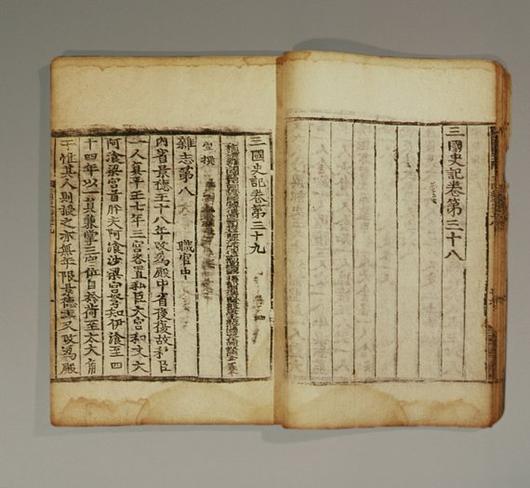 三國史記卷第三十八
三國史記卷第三十九
宣撰
雜志第八 職官中
內省景德王十八年改為殿中省後復故私臣
一人真平王七年三宮各置私臣大宮和文大
阿湌梁宮首肹夫阿湌沙梁宮弩知伊湌至四
十四年以一員兼掌三宮位自衿荷至太大角
干惟其人則授之亦無年限景德王又改為殿